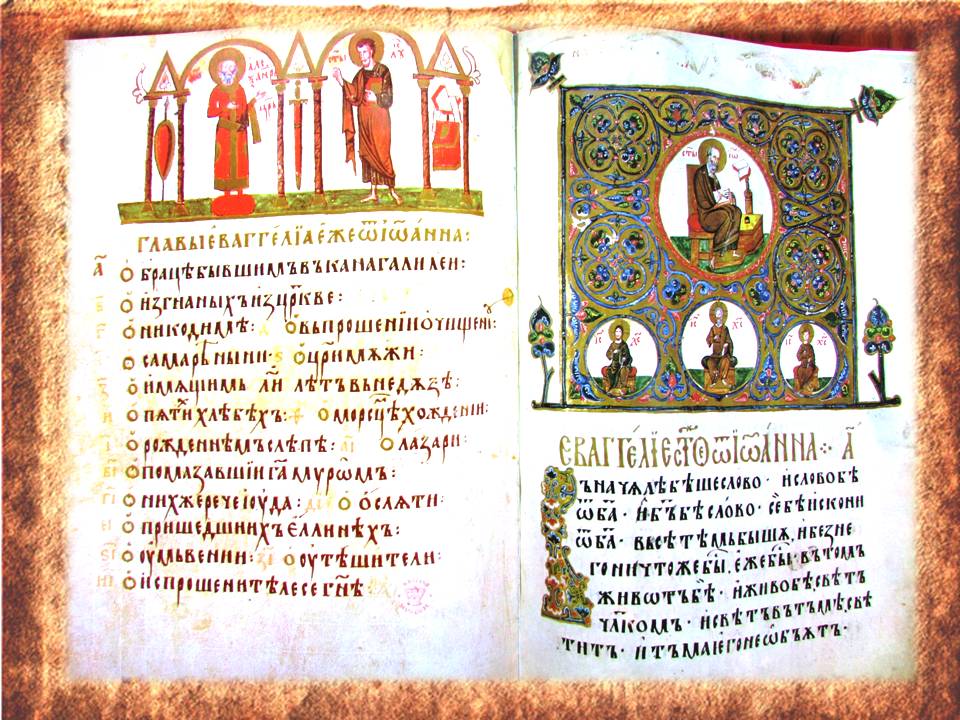 ГЛАВЫ ЕВАГГЕЛЇА ЕЖЕ Ѿ ІѠАННА:
А҃ О БРАЦѢ БЫВШИМЪ ВЪ КАНА ГАЛИЛЕИ:
О ИЗГНАНЫХЪ ИЗ ЦР҃КВЕ:
О НИКОДИМѢ: О ВЪПРОШЕНЇИ ОЧИЩЕНИ:
О САМАРѢНЫНИ· Ѕ О ЦР҃И МѪЖИ:
О ИМѪЩИМЬ ЛИ҃ ЛѢТЪ ВЬ НЕДѪЗѢ:
О ПѦТИ ХЛѢБѢХЪ: О МОРСЦѢ ХОЖДЕНИИ:
О РОЖДЕННѢМЪ СЛѢПѢ: О ЛАЗАРИ:
О ПОМАЗАВШИИ Г҃А МѴРѠМЪ:
О НИХЖЕ РЕЧЕ ІОУДА: О ОСЛѦТИ:
О ПРИШЕДШИИХЪ ЕЛЛИНѢХЪ:
О ОУМЬВЕНИИ: О ОУТѢШИТЕЛИ:
О ИСПРОШЕНИ ТѢЛЕСЕ ГН҃Ѣ
ЕВАГГЕЛЇЕ СТ҃ОЕ Ѿ ІѠАННА ⁘ А҃
ВЪ НАЧѦЛѢ БѢШЕ СЛОВО· И СЛОВО БѢ
Ѿ Б҃А· И Б҃Ъ БѢ СЛОВО· СЕ БѢ ИСКОНИ
Ѿ Б҃А· ВЬСѢ ТѢМЬ БЫШѦ, И БЕЗ НЕ
ГО НИЧТОЖЕ БЫ, ЕЖЕ БЫ· ВЪ ТОМЬ
ЖИВѠТЪ БѢ· И ЖИВО БѢ СВѢТЪ
ЧЛ҃КОМЪ· И СВѢТЪ ВЪ ТЪМѢ СВѢ
ТИТЪ· И ТЪМА ІЕГО НЕ ѠБѦТЪ·